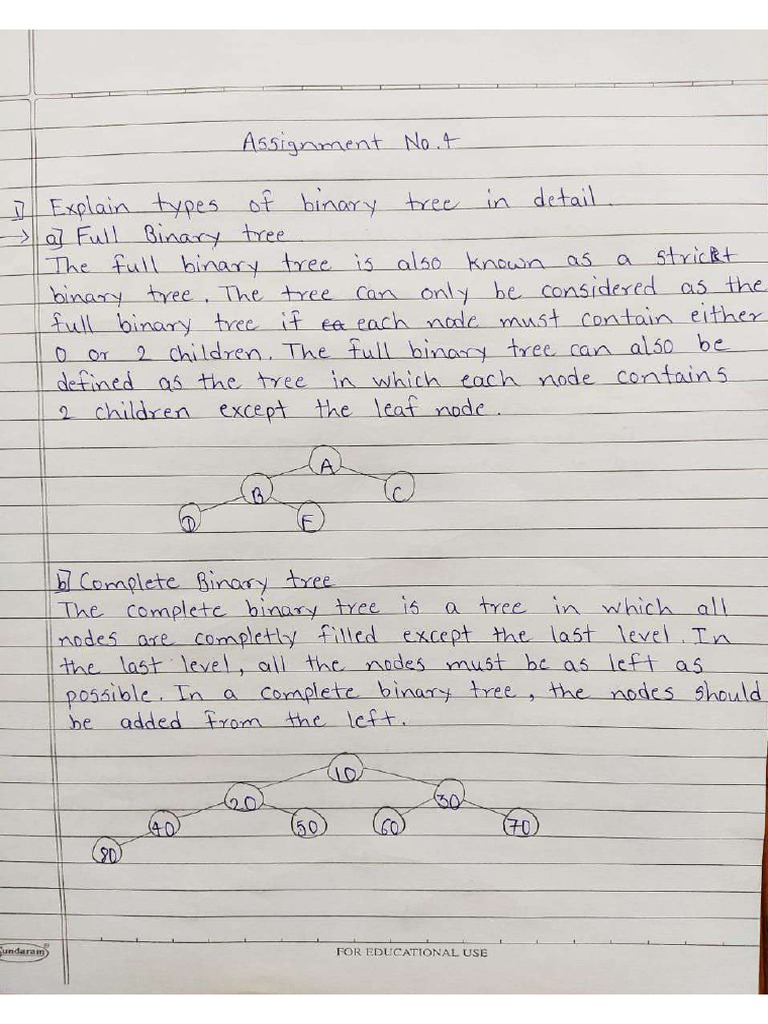 Assignment No.4
1] Explain types of binary tree in detail.
→ a] Full Binary tree
The full binary tree is also known as a strict
binary tree. The tree can only be considered as the
full binary tree if each node must contain either
0 or 2 children. The full binary tree can also be
defined as the tree in which each node contains
2 children except the leaf node.
A
B C
D E
b] Complete Binary tree
The complete binary tree is a tree in which all
nodes are completly filled except the last level. In
the last level, all the nodes must be as left as
possible. In a complete binary tree, the nodes should
be added from the left.
10
20 30
40 50 60 70
80
undaram
FOR EDUCATIONAL USE